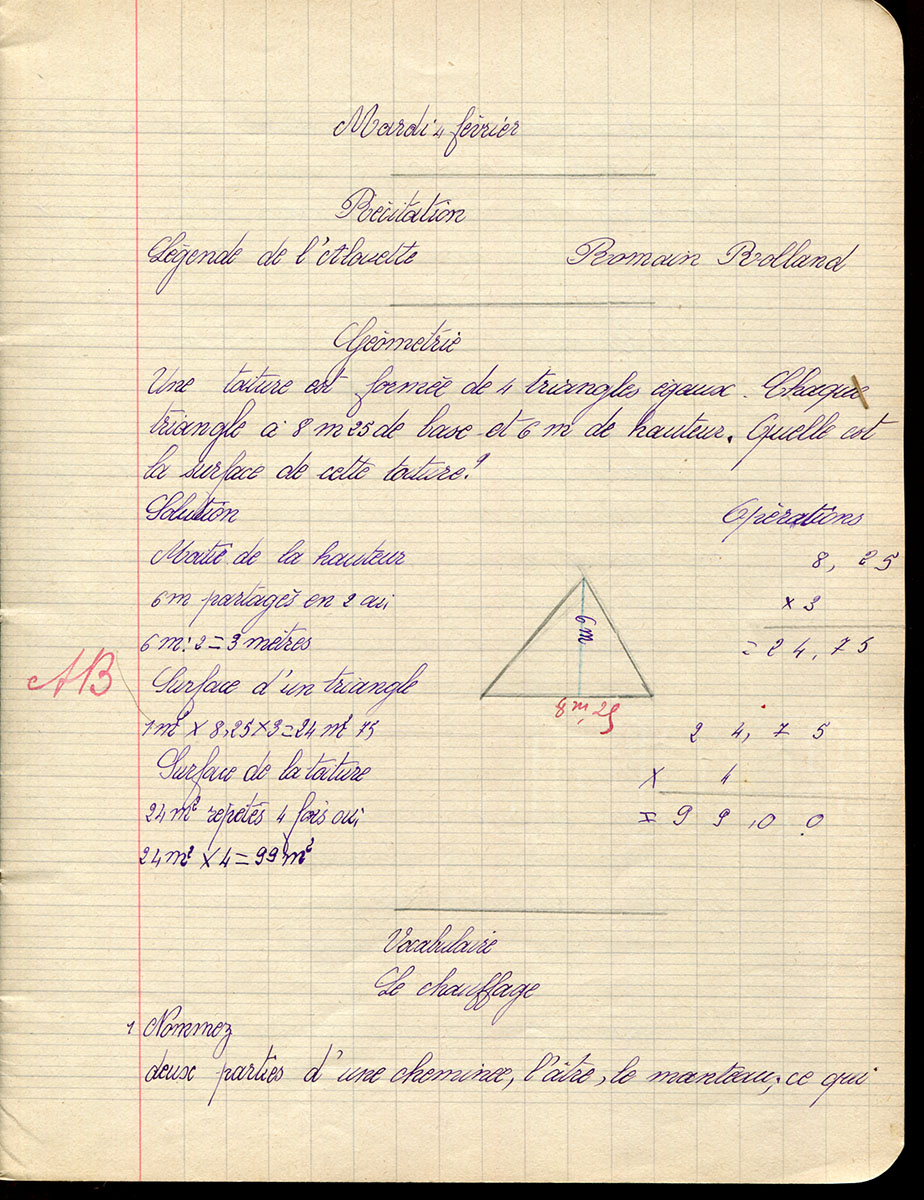 Mardi 4 février
Récitation
Légende de l'Alouette Romain Rolland
Géométrie
Une toiture est formée de 4 triangles égaux. Chaque
triangle à 8 m 25 de base et 6 m de hauteur. Quelle est
la surface de cette toiture?
Solution Opérations
Moitié de la hauteur 8, 25
6m partagés en 2 ou, × 3
6 m : 2 = 3 mètres = 24, 75
6 m
AB
Surface d'un triangle
8 m, 25
1m² × 8,25 × 3 = 24 m² 75 24, 75
Surface de la toiture × 4
24 m² repetés 4 fois ou, = 99,00
24 m² × 4 = 99 m²
Vocabulaire
Le chauffage
1 Nommez
deux parties d'une cheminée, l'âtre, le manteau; ce qui